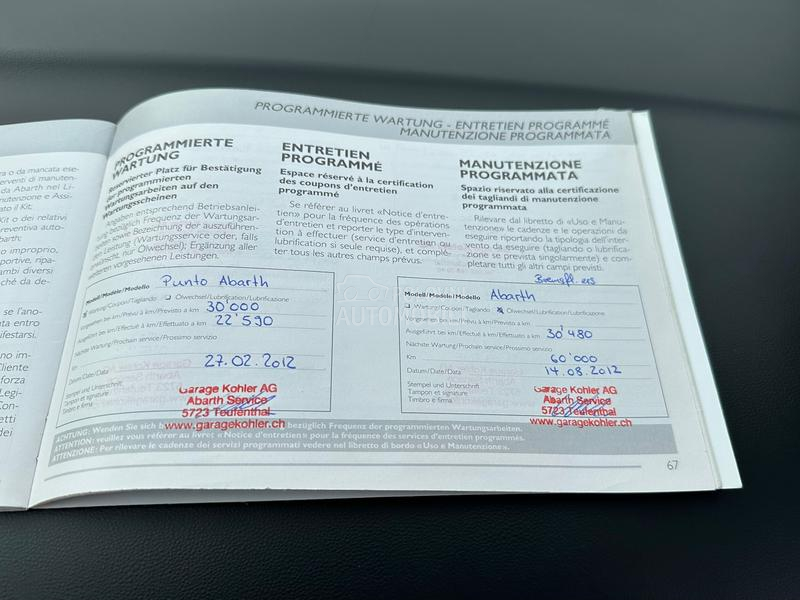 PROGRAMMIERTE WARTUNG - ENTRETIEN PROGRAMMÉ
MANUTENZIONE PROGRAMMATA
PROGRAMMIERTE
WARTUNG
Reservierter Platz für Bestätigung
der programmierten
Wartungsarbeiten auf den
Wartungsscheinen
Angaben entsprechend Betriebsanlei-
bezüglich Frequenz der Wartungsar-
sowie Bezeichnung der auszuführen-
Leistung (Wartungsservice oder, falls
nur Ölwechsel); Ergänzung aller
weiteren vorgesehenen Leistungen.
ENTRETIEN
PROGRAMMÉ
Espace réservé à la certification
des coupons d'entretien
programmé
Se référer au livret «Notice d'entre-
tien» pour la fréquence des opérations
d'entretien et reporter le type d'interven-
tion à effectuer (service d'entretien ou
lubrification si seule requise), et complé-
ter tous les autres champs prévus.
MANUTENZIONE
PROGRAMMATA
Spazio riservato alla certificazione
dei tagliandi di manutenzione
programmata
Rilevare dal libretto di «Uso e Manu-
tenzione» le cadenze e le operazioni da
eseguire riportando la tipologia dell'inter-
vento da eseguire (tagliando o lubrifica-
zione se prevista singolarmente) e com-
pletare tutti gli altri campi previsti.
Modell/Modèle/Modello Punto Abarth
Wartung/Coupon/Tagliando Ölwechsel/Lubrification/Lubrificazione
Vorgesehen bei km/Prévu à km/Previsto a km 30'000
Ausgeführt bei km/Effectué à km/Effettuato a km 22'590
Nächste Wartung/Prochain service/Prossimo servizio
Datum/Date/Data 27.02.2012
Stempel und Unterschrift
Tampon et signature
Timbro e firma
Garage Kohler AG
Abarth Service
5723 Teufenthal
www.garagekohler.ch
Modell/Modèle/Modello Abarth
Wartung/Coupon/Tagliando Ölwechsel/Lubrification/Lubrificazione
Vorgesehen bei km/Prévu à km/Previsto a km
Ausgeführt bei km/Effectué à km/Effettuato a km 30'480
Nächste Wartung/Prochain service/Prossimo servizio
Km 60'000
Datum/Date/Data 14.08.2012
Stempel und Unterschrift
Tampon et signature
Timbro e firma
Garage Kohler AG
Abarth Service
5723 Teufenthal
www.garagekohler.ch
ACHTUNG: Wenden Sie sich bezüglich Frequenz der programmierten Wartungsarbeiten.
ATTENTION: veuillez vous référer au livret «Notice d'entretien» pour la fréquence des services d'entretien programmés.
ATTENZIONE: Per rilevare le cadenze dei servizi programmati vedere nel libretto di bordo «Uso e Manutenzione».
67